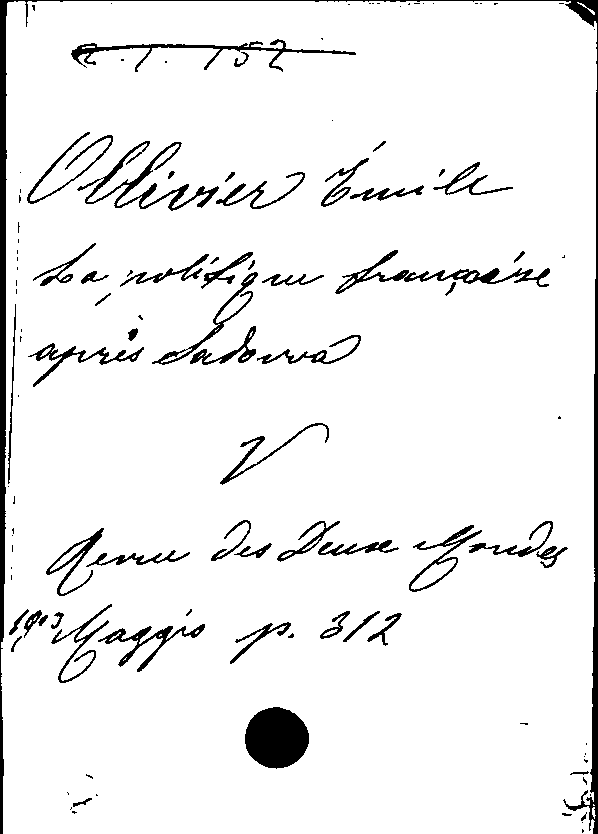 2. 1. 152
Ollivier Émile
La politique française
après Sadowa
V
Revue des Deux Mondes
1903 Maggio p. 312